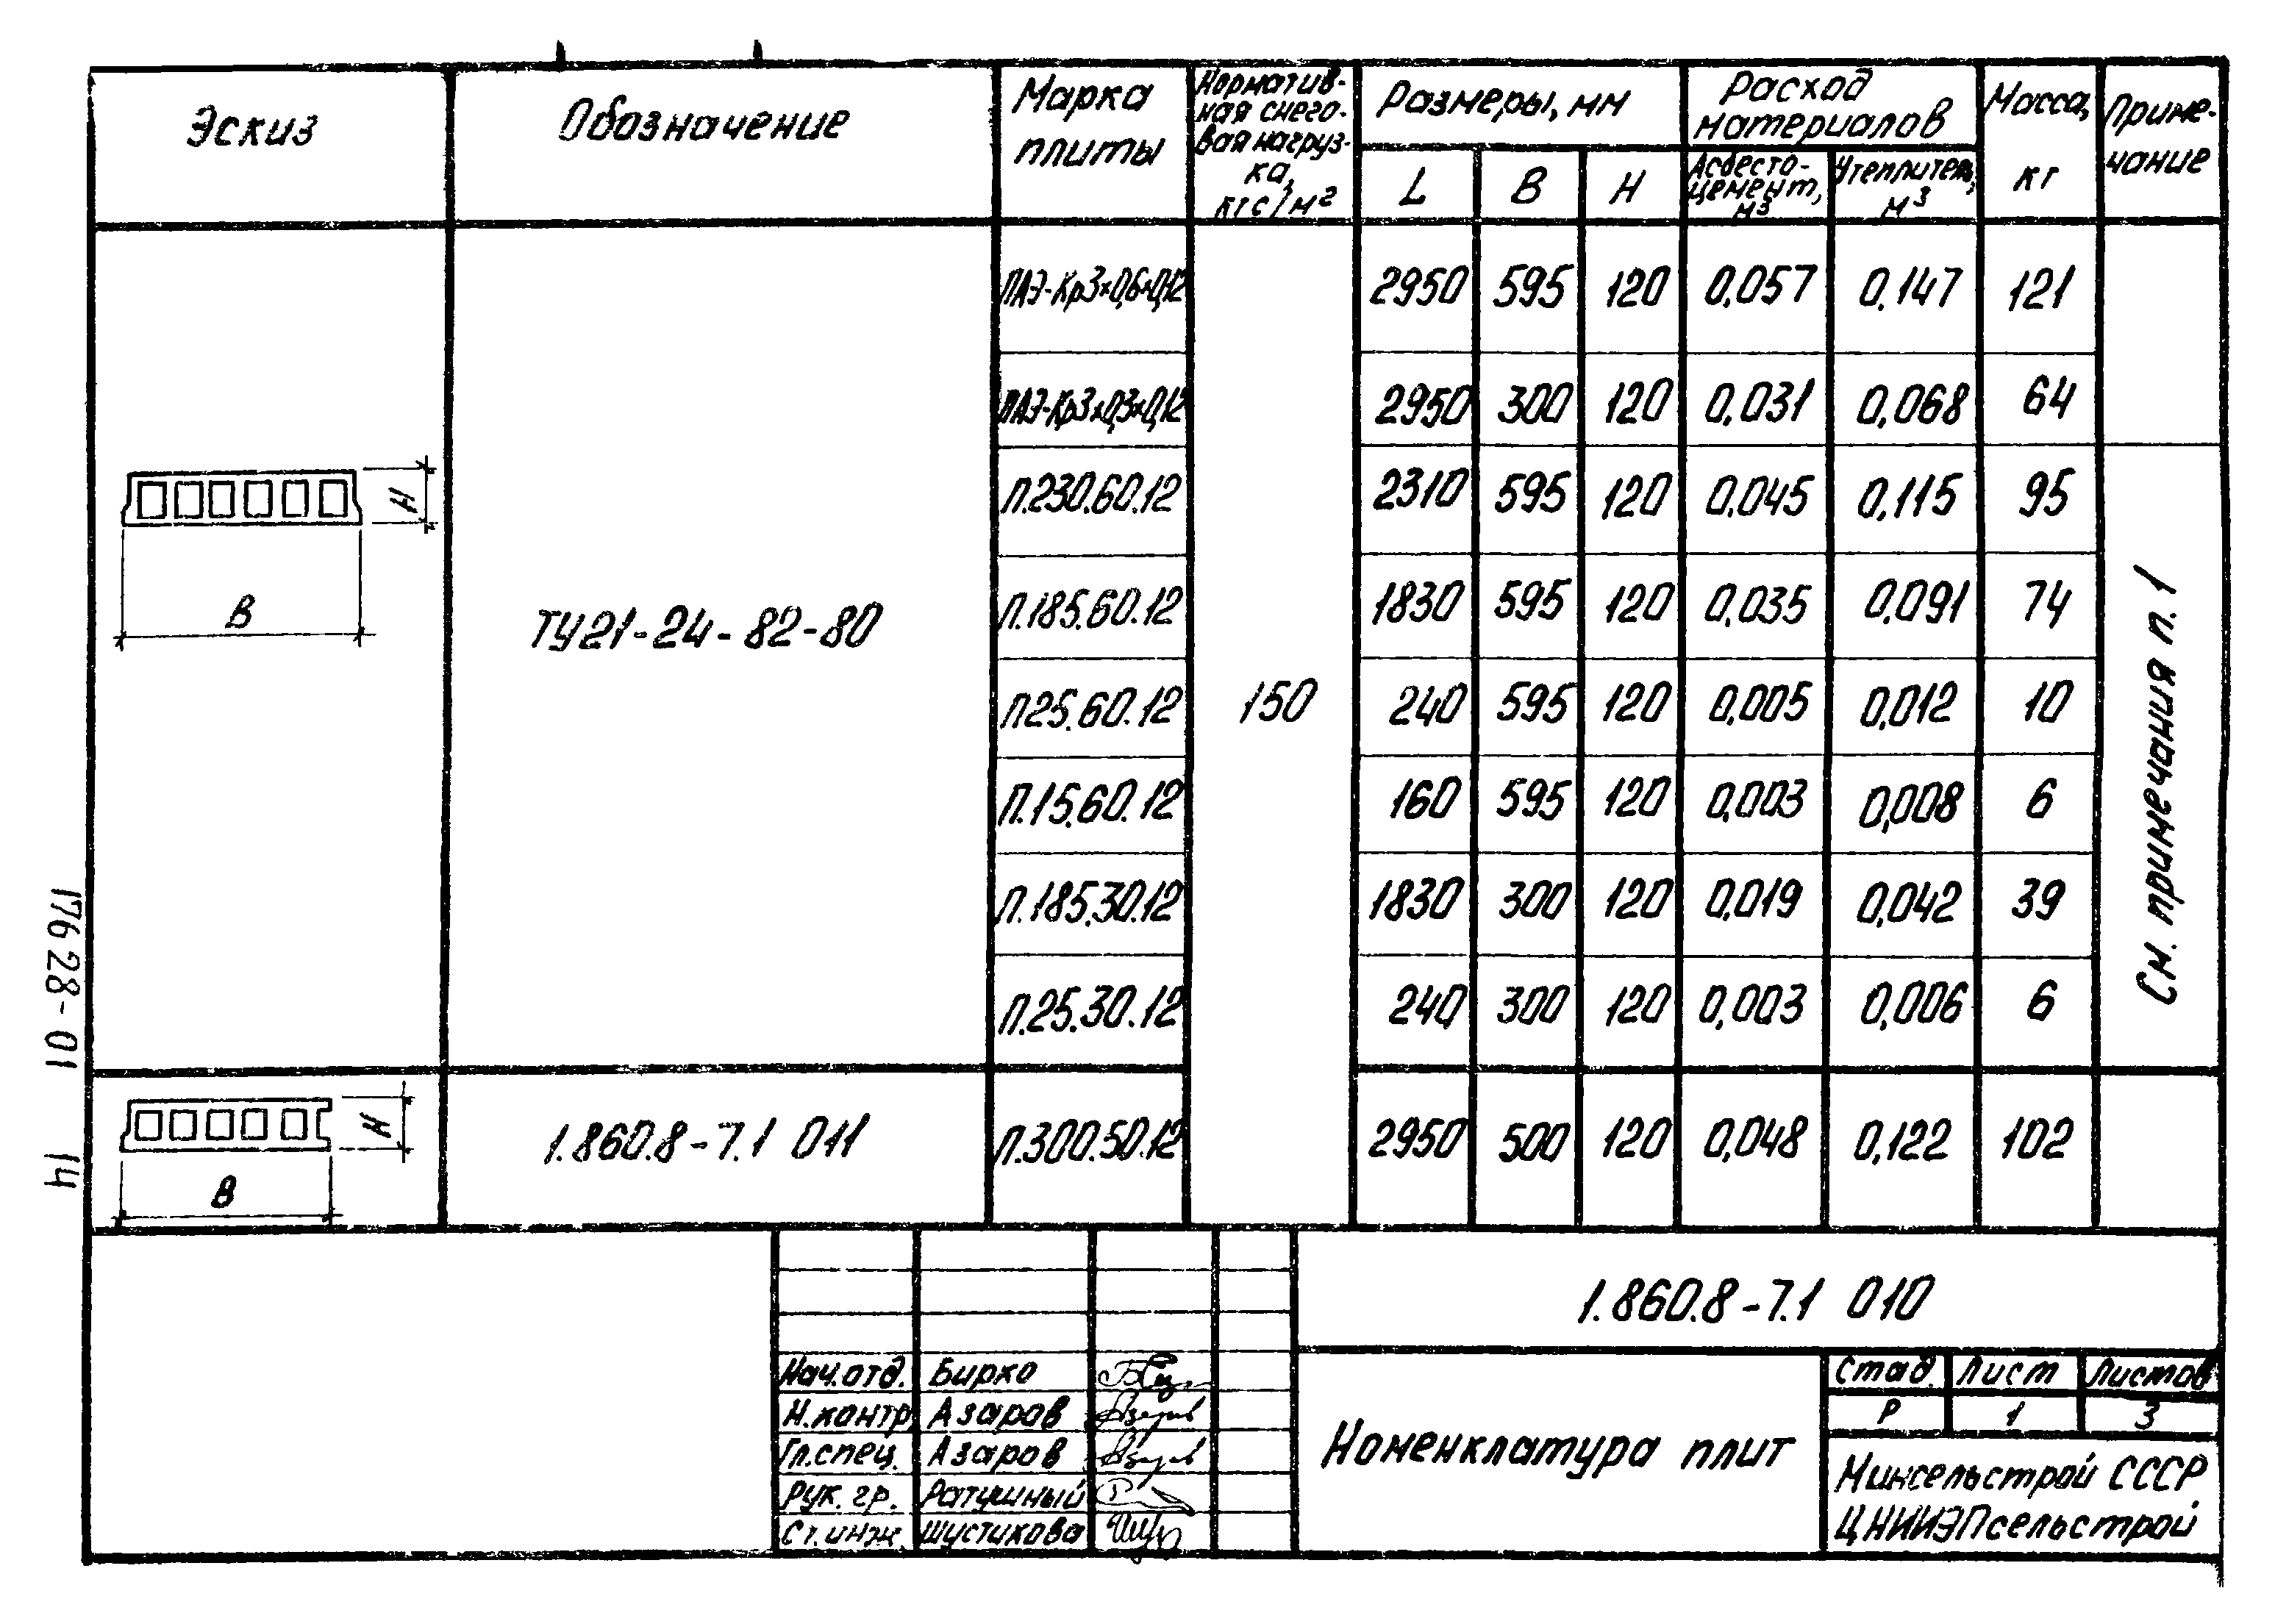 Эскиз
Обозначение
Марка
плиты
Норматив-
ная снего-
вая нагруз-
ка,
кгс/м²
Размеры, мм
L B H
Расход
материалов
Асбесто-
цемент,
м³
Утеплитель,
м³
Масса,
кг
Приме-
чание
ПАЭ-Кр3×0,6×0,12 2950 595 120 0,057 0,147 121
ПАЭ-Кр3×0,3×0,12 2950 300 120 0,031 0,068 64
П.230.60.12 2310 595 120 0,045 0,115 95
П.185.60.12 1830 595 120 0,035 0,091 74
П25.60.12 240 595 120 0,005 0,012 10
П.15.60.12 160 595 120 0,003 0,008 6
П.185.30.12 1830 300 120 0,019 0,042 39
П.25.30.12 240 300 120 0,003 0,006 6
H
B
ТУ21-24-82-80
150
См. примечания п. 1
H
B
1.860.8-7.1 011 П.300.50.12 2950 500 120 0,048 0,122 102
17628-01 14
1.860.8-7.1 010
Нач.отд. Бирко
Н.контр. Азаров
Гл.спец. Азаров
Рук. гр. Ратушный
Ст.инж. Шустикова
Номенклатура плит
Стад. Лист Листов
Р 1 3
Минсельстрой СССР
ЦНИИЭПсельстрой